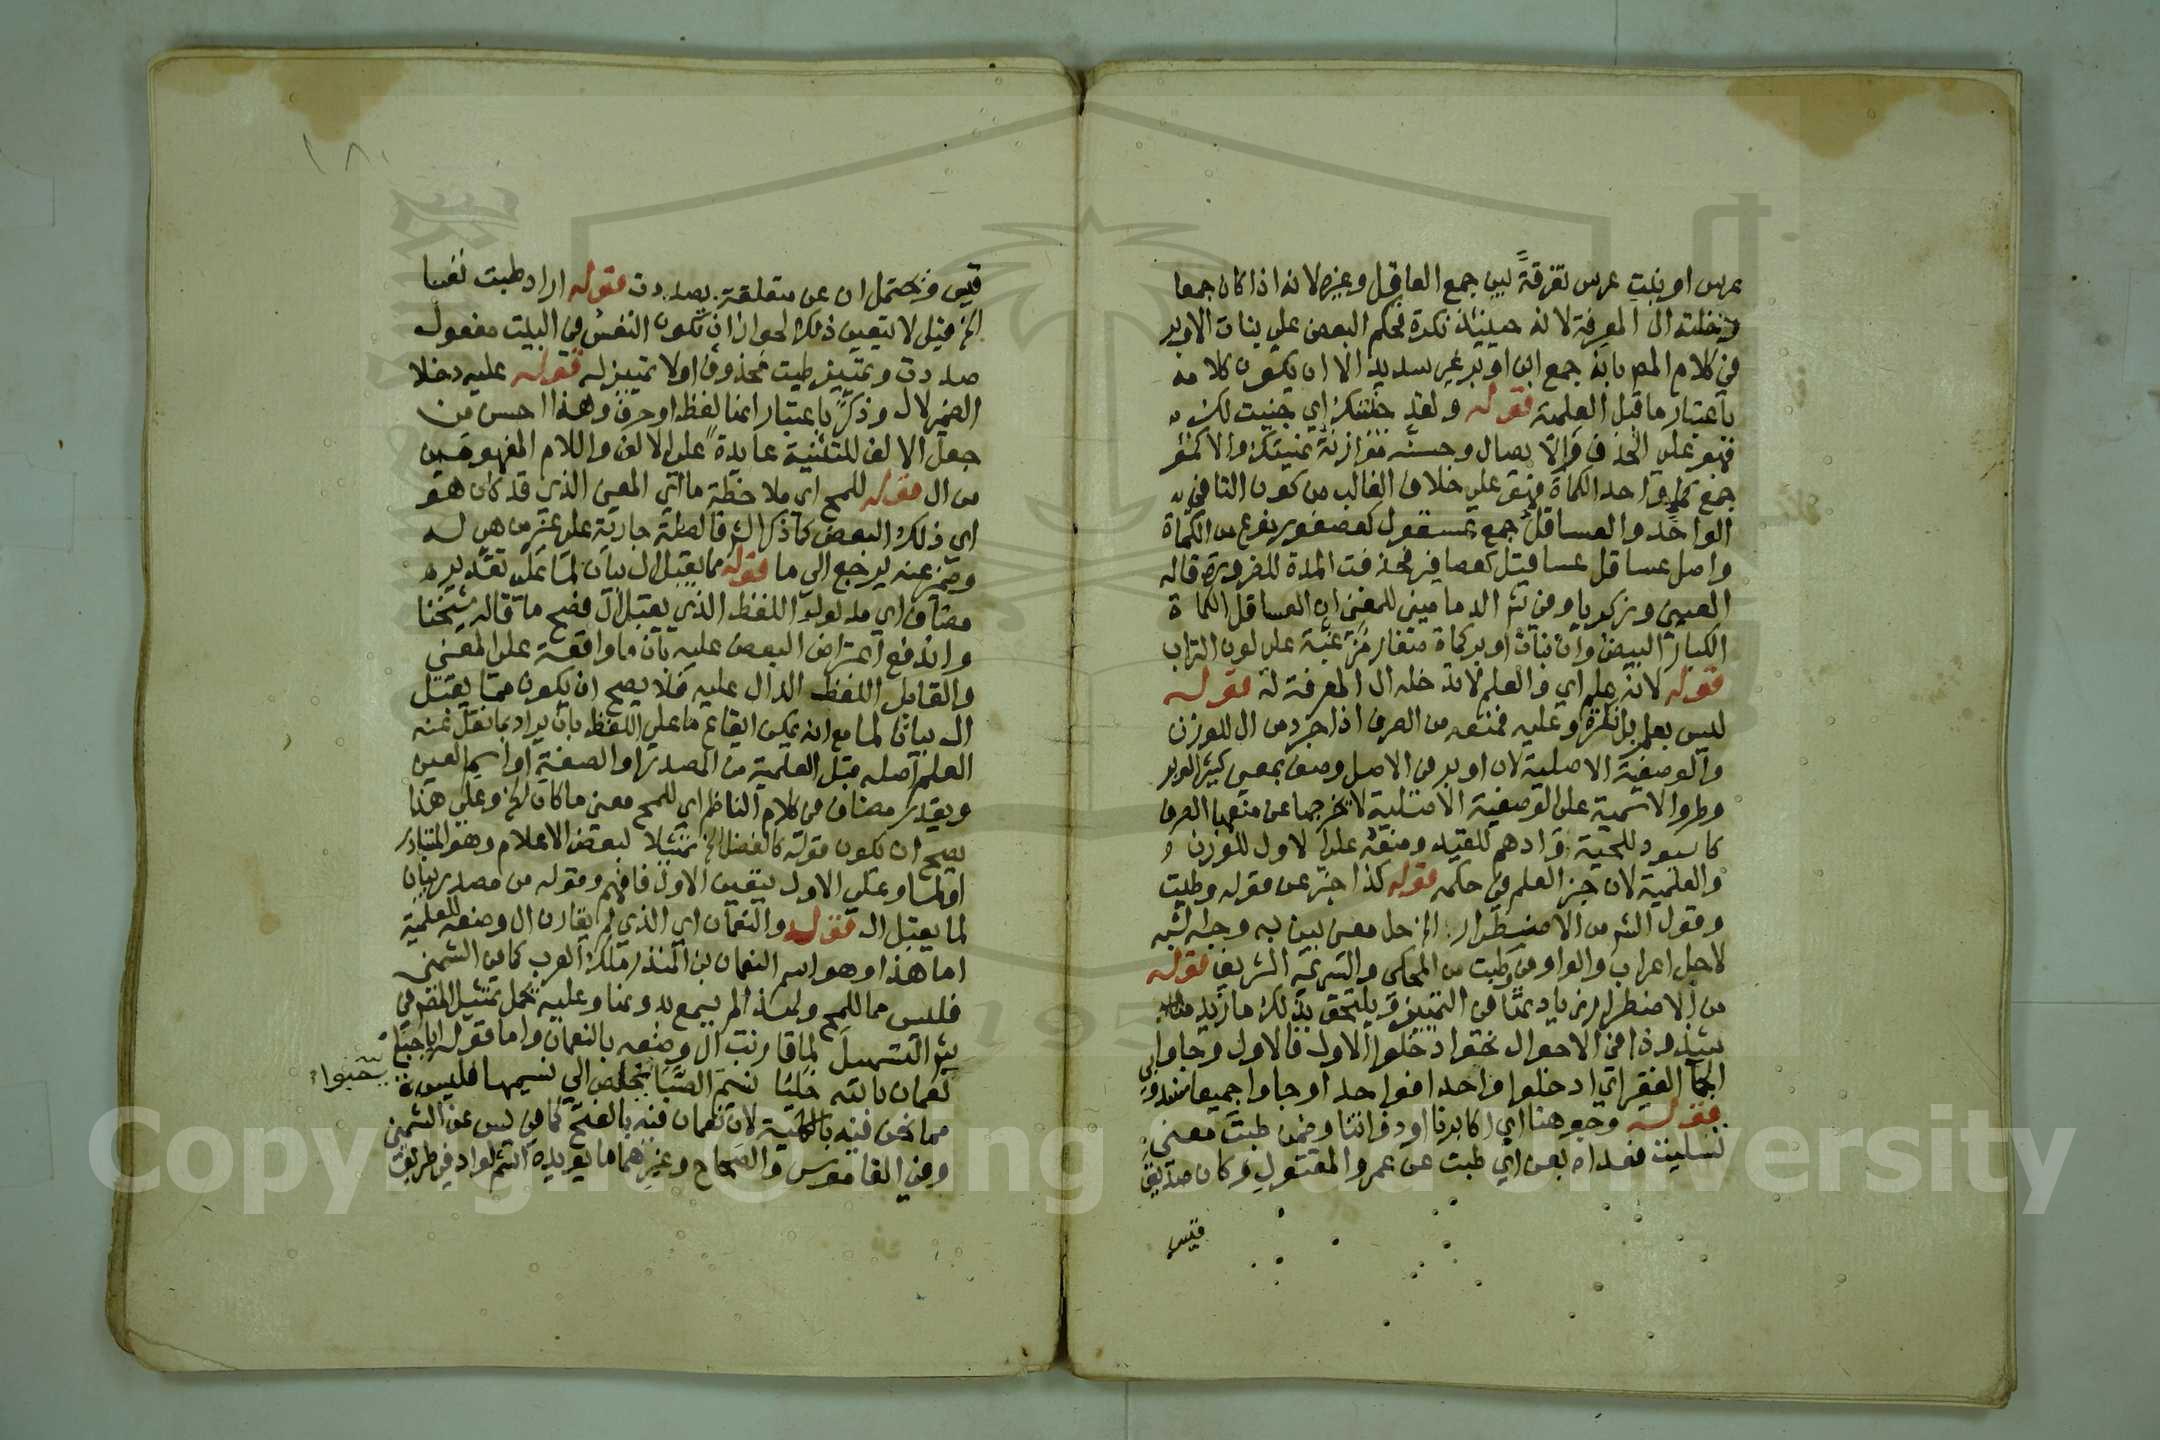 عرس او بنت عرس تفرقةً بين جمع العاقل وغيره لانه اذا كان جمعا
دخلته ال المعرفة لانه حينئذ نكرة فحكم البعض على بنات الاوبر
في كلام المص بانه جمع ابن اوبر غير سديد الا ان يكون كلامه
باعتبار ما قبل العلمية قوله ولقد جنيتك اي جنيت لك
فهو على الحذف والايصال وحسنه موازنة نهيتك والاكمؤ
جمع كمؤ واحد الكمأة فهو على خلاف الغالب من كون التا في
الواحد والعساقل جمع عسقول كعصفور نوع من الكمأة
واصل عساقل عساقيل كعصافير فحذفت المدة للضرورة قاله
العيني وزكريا وفي شر الدماميني للمغني ان العساقل الكمأة
الكبار البيض وان بنات اوبر كمأة صغار مزغبة على لون التراب
قوله لانه علم اي والعلم لا تدخله ال المعرفة له قوله
ليس بعلم بل نكرة وعليه فمنعه من الصرف اذا جرد من ال للوزن
والوصفية الاصلية لان اوبر في الاصل وصف بمعنى كثير الوبر
وطروا الاسمية على الوصفية الاصلية لا يخرجها عن منعها الصرف
كاسود للحية وادهم للقيد ومنعه على الاول للوزن و
والعلمية لان جزء العلم في حكمه قوله كذا خبر عن قوله وطبت
وقول الشر من الاضطرار الخ حل معنى بين به وجه الشبه
لاحل اعراب والواو في وطبت من المحكى والتبرئة الشريف قوله
من الاضطرار زيادتها في التمييز ويلتحق بذلك ما زيد منه
شذوذا في الاحوال نحو ادخلوا الاول فالاول وجاوا
الجما الغفير اي ادخلوا واحدا فواحدا وجاوا جميعا
قوله وجوهنا اي اكابرنا او ذواتنا وضمن طبت معنى
تسليت فعداه بعن اي طبت عن عمرو المقتول وكان صديق
قيس
قيس ويحتمل ان عن متعلقة بصددت قوله اراد طبت نفسا
الخ قيل لا يتعين ذلك لجواز ان تكون النفس في البيت مفعول
صددت وتمييز طبت محذوف او لا تمييز له قوله عليه دخلا
الضمير لال وذكر باعتبار انها لفظ او حرف وهذا احسن من
جعل الالف للتثنية عايدة على الالف واللام المفهومين
من ال قوله للمح اي ملاحظة ما اي المعنى الذي قد كان هو
اي ذلك البعض كما ذكره الشر فالصلة جارية على غير من هي له
وضمير عنه يرجع الى ما قوله مما يقبل ال بيان لما على تقدير
مضاف اي مدلول اللفظ الذي يقبل ال فصح ما قاله شيخنا
واندفع اعتراض البعض عليه بان ما واقعة على المعنى
والقابل اللفظ الدال عليه فلا يصح ان يكون مما يقبل
ال بيانا لما مع انه يمكن ايقاع ما على اللفظ بان يراد بما نقل عنه
العلم اصله قبل العلمية من المصدر او الصفة او اسم العين
ويقدر مضاف في كلام الناظم اي للمح معنى ما كان الخ وعلى هذا
يصح ان يكون قوله كالفضل الخ تمثيلا لبعض الاعلام وهو المتبادر
او لما وعلى الاول يتعين الاول فافهم وقوله من مصدر بيان
لما يقبل ال قوله والنعمان اي الذي لم يقارن ال وضعه للعلمية
اما هذا وهو اسم النعمان بن المنذر ملك العرب كما في الشمني
فليس مما للمح ولهذا لم يسمع بدونها وعليه يحمل تمثيل المص في
شر التسهيل لما قارنت ال وضعه بالنعمان واما قوله ايا جبلى
نعمان بالله خليا نسيم الصبا يخلص الي نسيمها فليس
مما نحن فيه بالكلية لان نعمان فيه بالفتح كما في يس عن الشمني
وفي القاموس والصحاح وغيرهما ما يؤيده اسم لواد في طريق